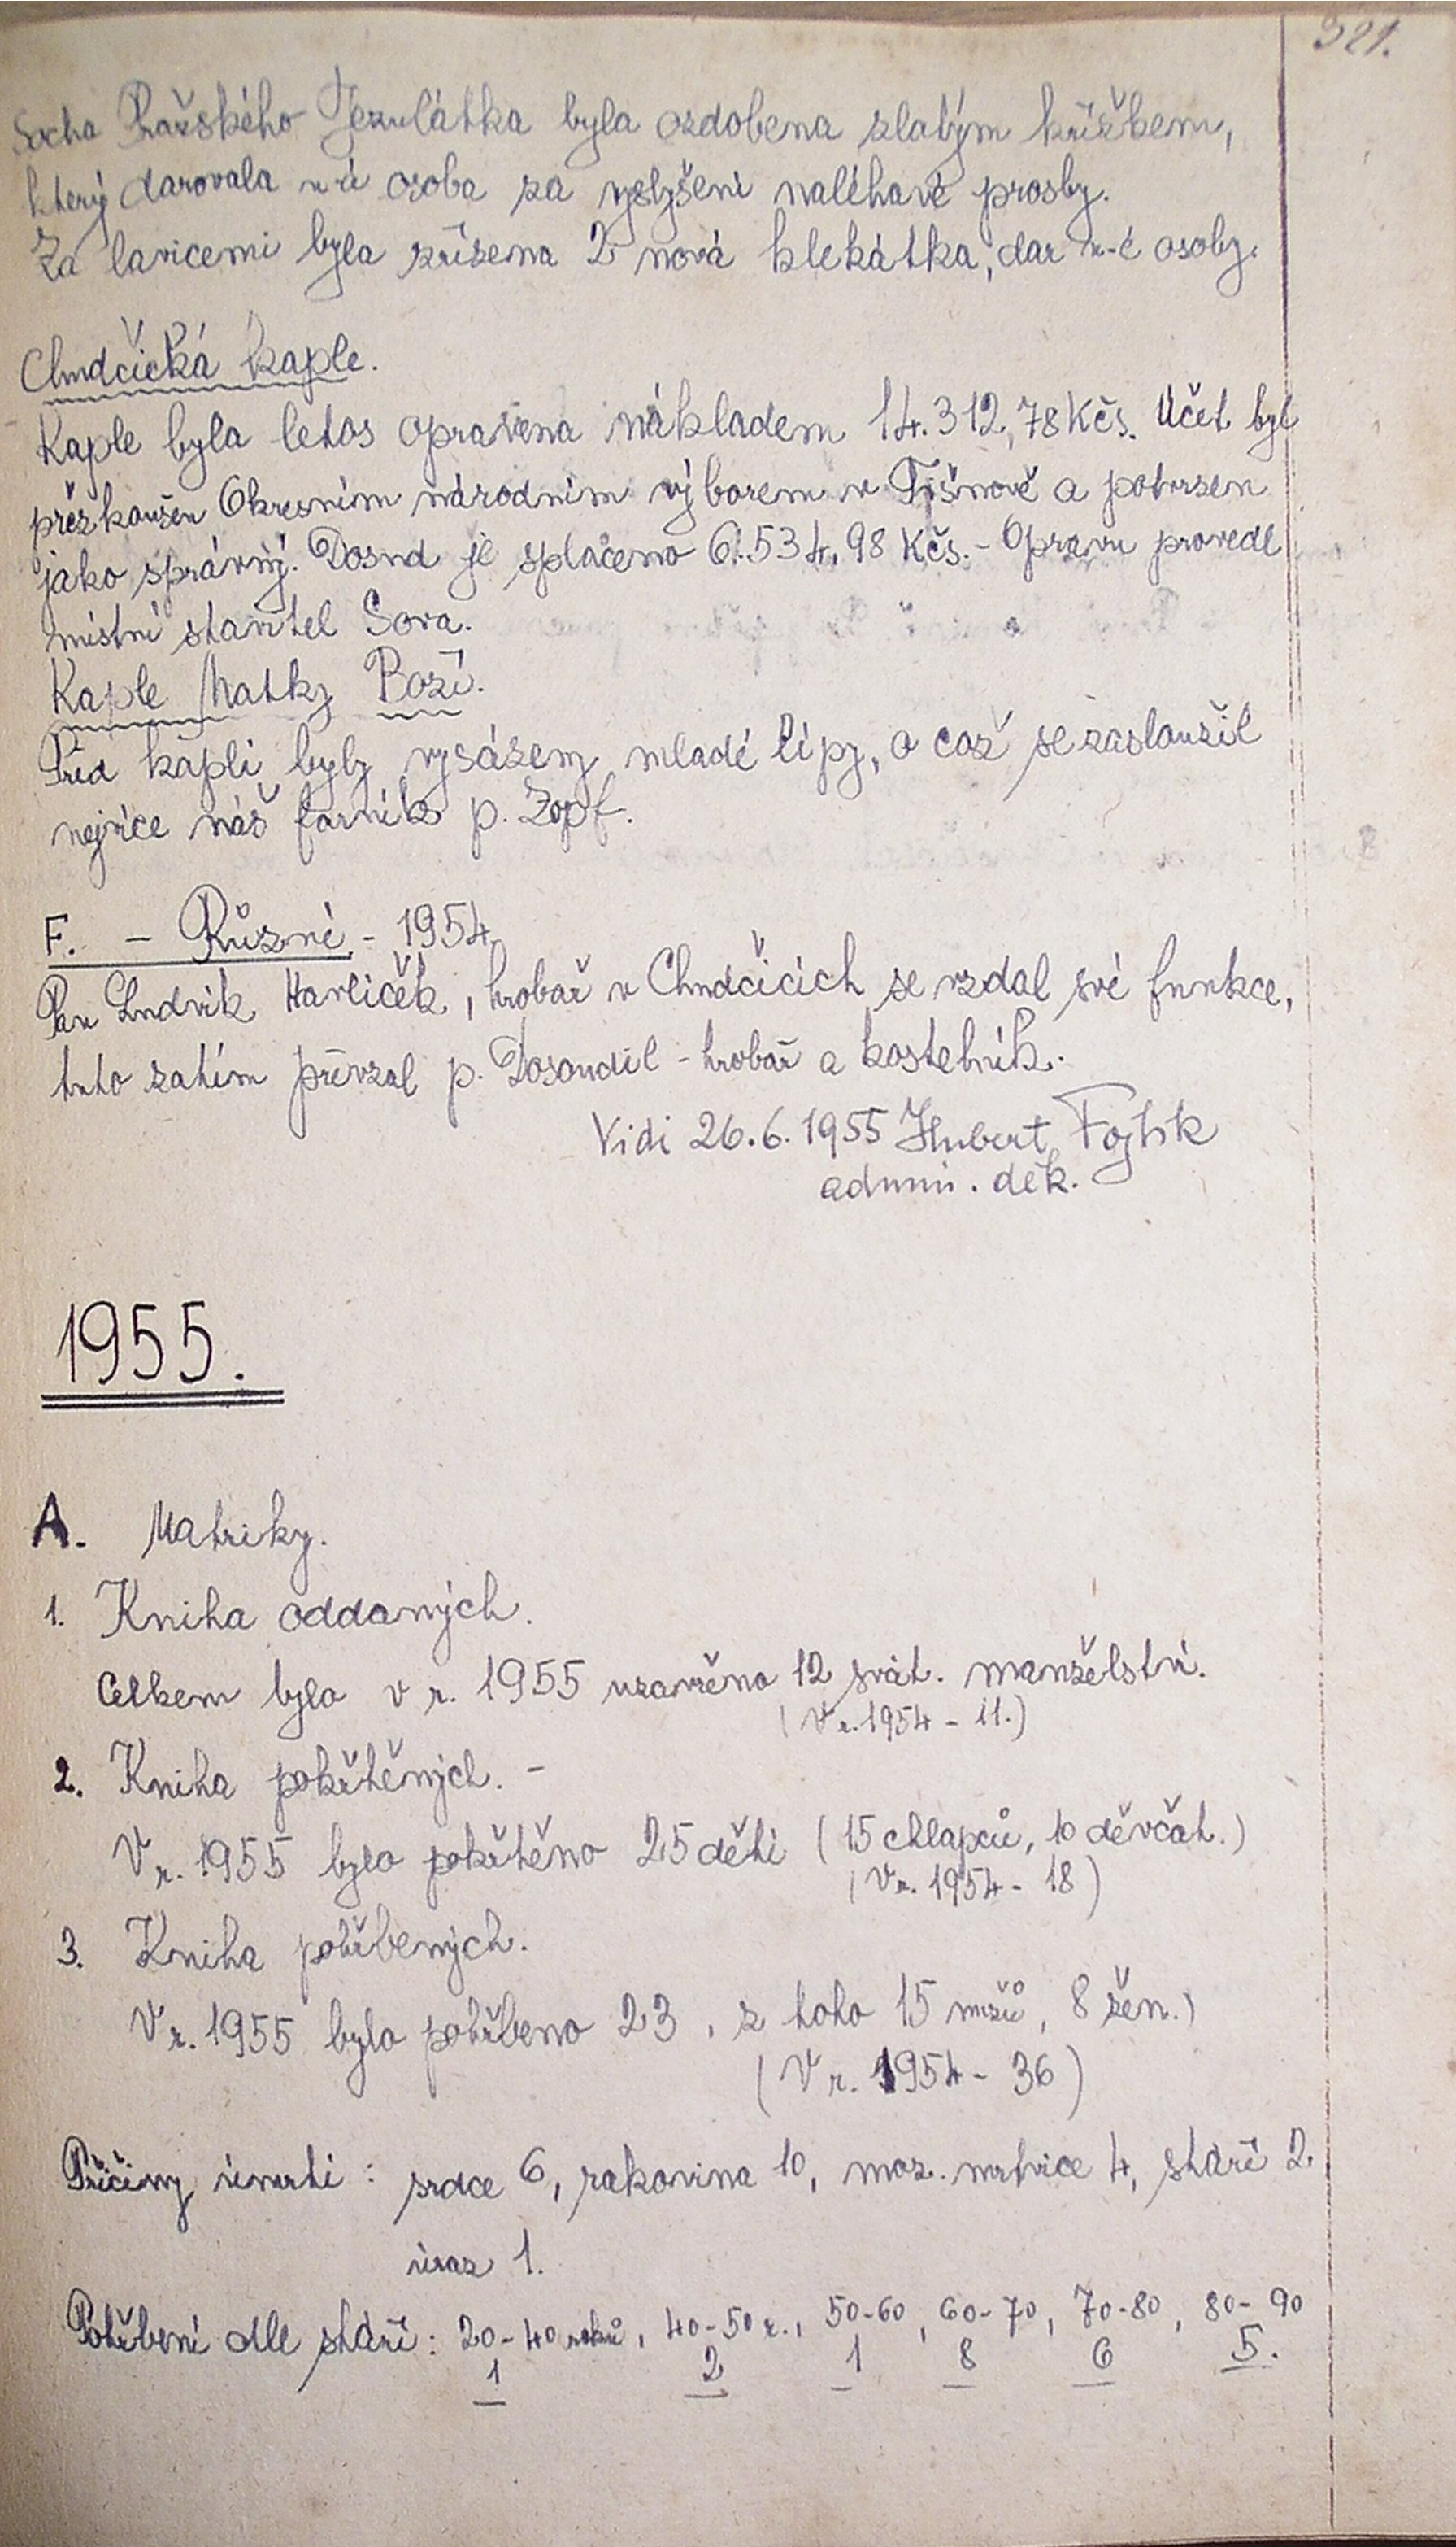 321.
Socha Pražského Jezulátka byla ozdobena zlatým křížkem,
který darovala u-ří osoba za vyslyšení naléhavé prosby.
Za lavicemi byla zřízena 2 nová klekátka, dar u-é osoby.
Chudčická kaple.
Kaple byla letos opravena nákladem 14.312,78 Kčs. Účet byl
přezkoušen Okresním národním výborem v Tišnově a potvrzen
jako správný. Dosud je splaceno 6.534,98 Kčs. - Opravu provedl
místní stavitel Sova.
Kaple Matky Boží.
Před kaplí byly vysázeny mladé lípy, o což se zasloužil
nejvíce náš farník p. Zopf.
F. - Různé - 1954
Pan Ludvík Havlíček, hrobař v Chudčicích se vzdal své funkce,
tuto zatím převzal p. Dosoudil - hrobař a kostelník.
Vidi 26.6.1955 Hubert Fojtík
admin. děk.
1955.
A. Matriky.
1. Kniha oddaných.
Celkem bylo v r. 1955 uzavřeno 12 svát. manželství.
(V r. 1954 - 11.)
2. Kniha pokřtěných. -
V r. 1955 bylo pokřtěno 25 dětí (15 chlapců, 10 děvčat.)
(V r. 1954 - 18)
3. Kniha pohřbených.
V r. 1955 bylo pohřbeno 23, z toho 15 mužů, 8 žen.)
(V r. 1954 - 36)
Příčiny úmrtí: srdce 6, rakovina 10, moz. mrtvice 4, stáří 2
úraz 1.
Pohřbení dle stáří: 20-40 roků, 40-50 r., 50-60, 60-70, 70-80, 80-90
1 2 1 8 6 5.